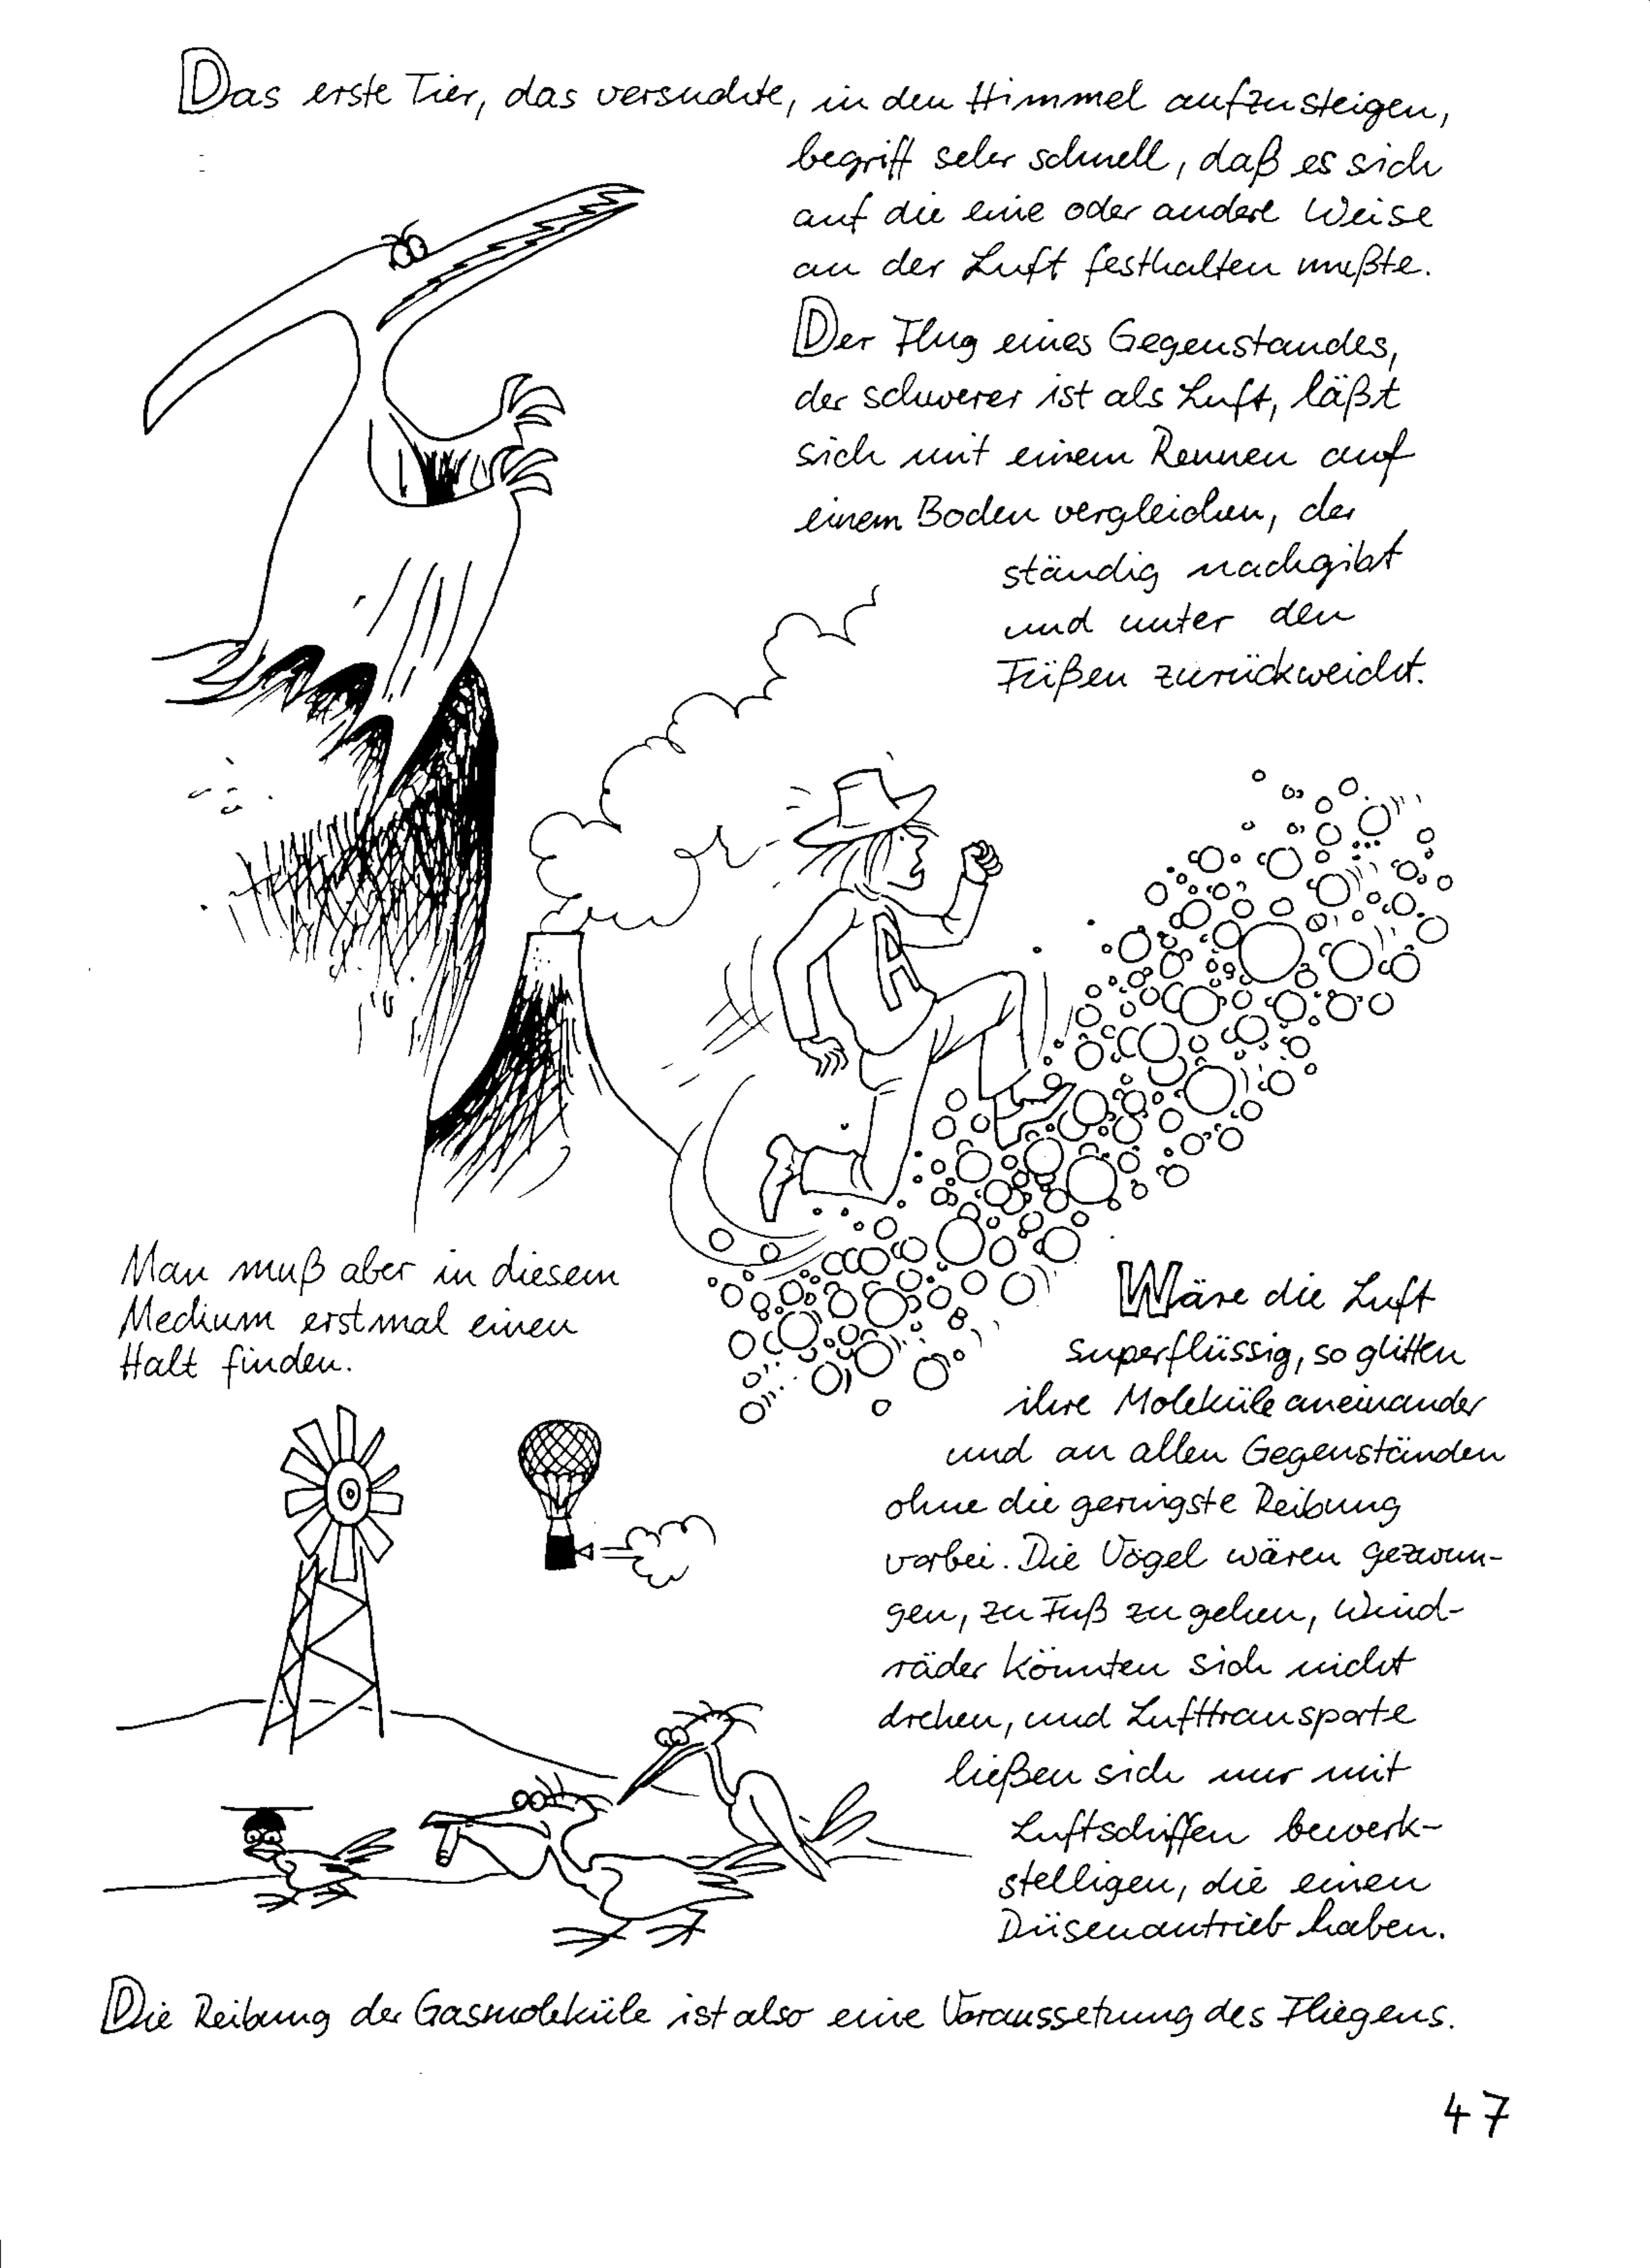 Das erste Tier, das versuchte, in den Himmel aufzusteigen,
begriff sehr schnell, daß es sich
auf die eine oder andere Weise
an der Luft festhalten mußte.
Der Flug eines Gegenstandes,
der schwerer ist als Luft, läßt
sich mit einem Rennen auf
einem Boden vergleichen, der
ständig nachgibt
und unter den
Füßen zurückweicht.
A
Man muß aber in diesem
Medium erstmal einen
Halt finden.
Wäre die Luft
superflüssig, so glitten
ihre Moleküle aneinander
und an allen Gegenständen
ohne die geringste Reibung
vorbei. Die Vögel wären gezwun-
gen, zu Fuß zu gehen, Wind-
räder könnten sich nicht
drehen, und Lufttransporte
ließen sich nur mit
Luftschiffen bewerk-
stelligen, die einen
Düsenantrieb haben.
Die Reibung der Gasmoleküle ist also eine Voraussetzung des Fliegens.
47